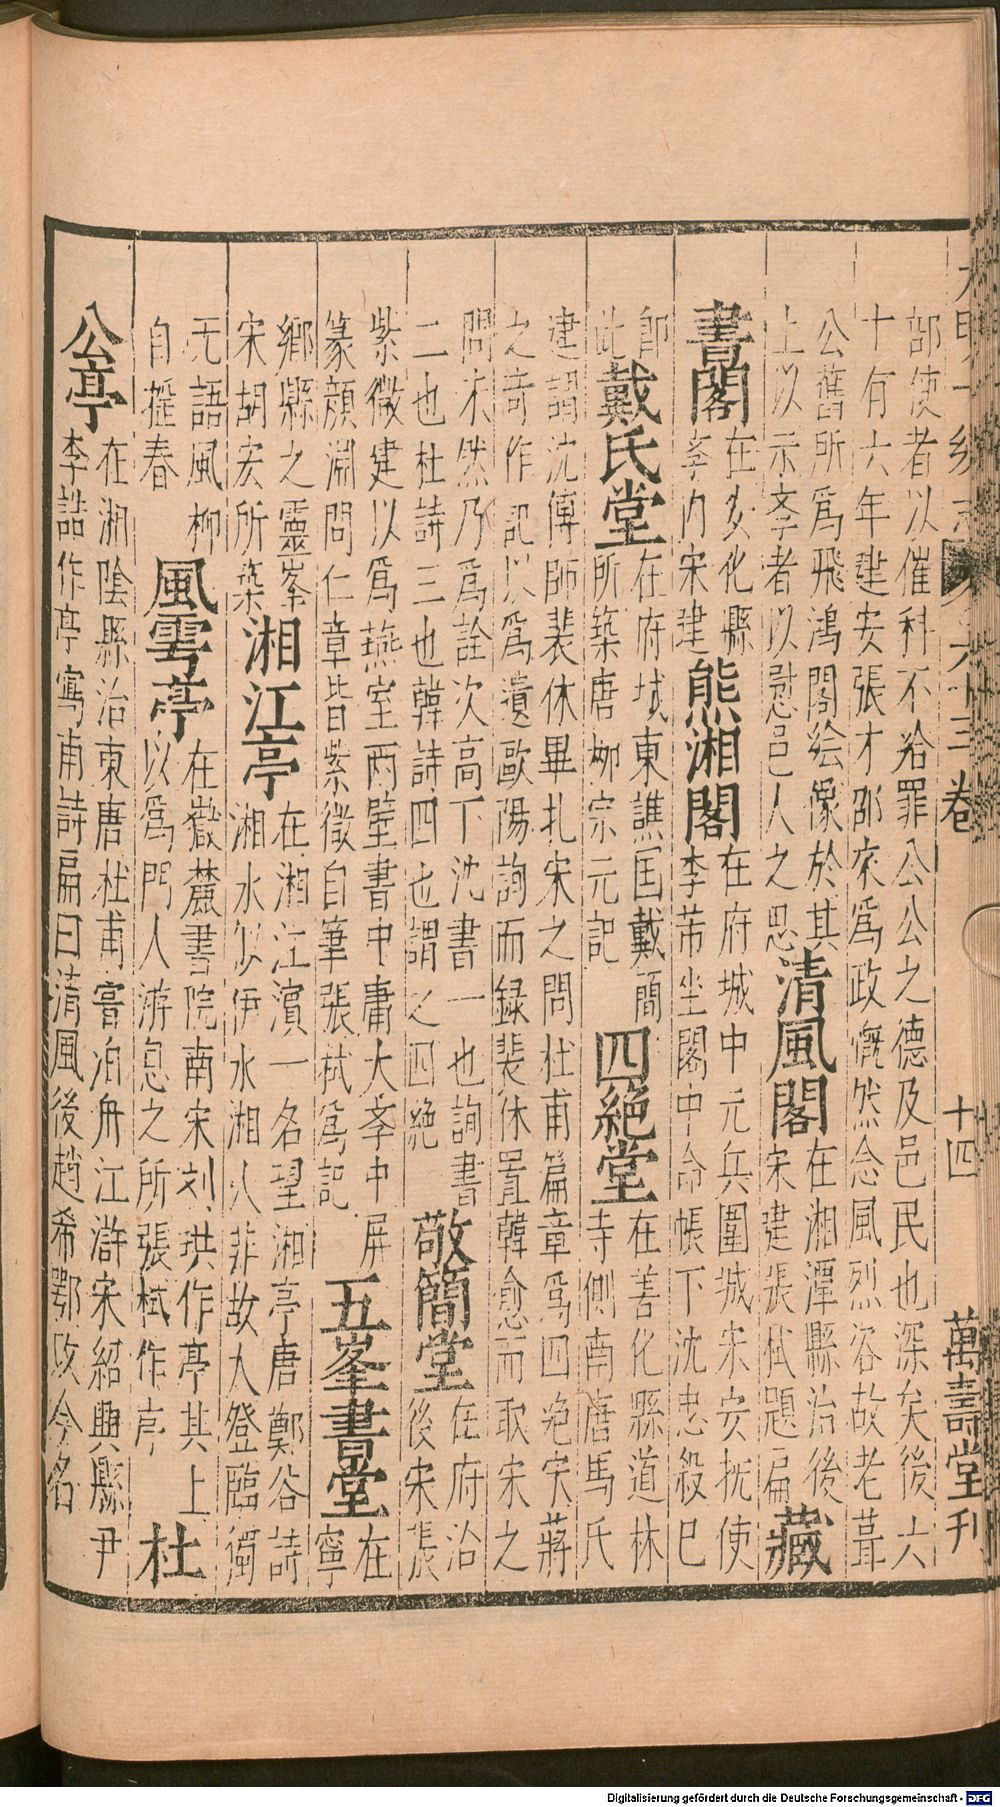 大明一統志 六十三卷 十四 萬壽堂刊
部使者以催科不給罪公公之德及邑民也深矣後六
十有六年建安張才邵來爲政慨然念風烈咨故老葺
公舊所爲飛鴻閣绘像於其
上以示孝者以慰邑人之思
清風閣
在湘潭縣治後
宋建張栻題扁
藏
書閣
在安化縣
孝内宋建
熊湘閣
在府城中元兵圍城宋安抚使
李芾坐閣中命帳下沈忠殺巳
即
此
戴氏堂
在府城東譙国戴簡
所築唐柳宗元記
四絶堂
在善化縣道林
寺側南唐馬氏
建謂沈傳師裴休畢扎宋之問杜甫篇章爲四绝宋蔣
之奇作記以爲遺歐陽詢而録裴休置韓愈而取宋之
問未然乃爲詮次高下沈書一也詢書
二也杜詩三也韓詩四也謂之四絶
敬簡堂
在府治
後宋張
紫微建以爲燕室两壁書中庸大孝中屏
篆顔淵問仁章皆紫微自筆張栻爲記
五峯書堂
在
寧
鄉縣之靈峯
宋胡宏所築
湘江亭
在湘江濱一名望湘亭唐鄭谷詩
湘水似伊水湘人非故人登臨獨
无語風柳
自摇春
風雩亭
在嶽麓書院南宋刘珙作亭其上
以爲門人游息之所張栻作亭
杜
公亭
在湘陰縣治東唐杜甫嘗泊舟江滸宋紹興縣尹
李詰作亭寫甫詩扁曰清風後趙希鄂改今名
Digitalisierung gefördert durch die Deutsche Forschungsgemeinschaft - DFG